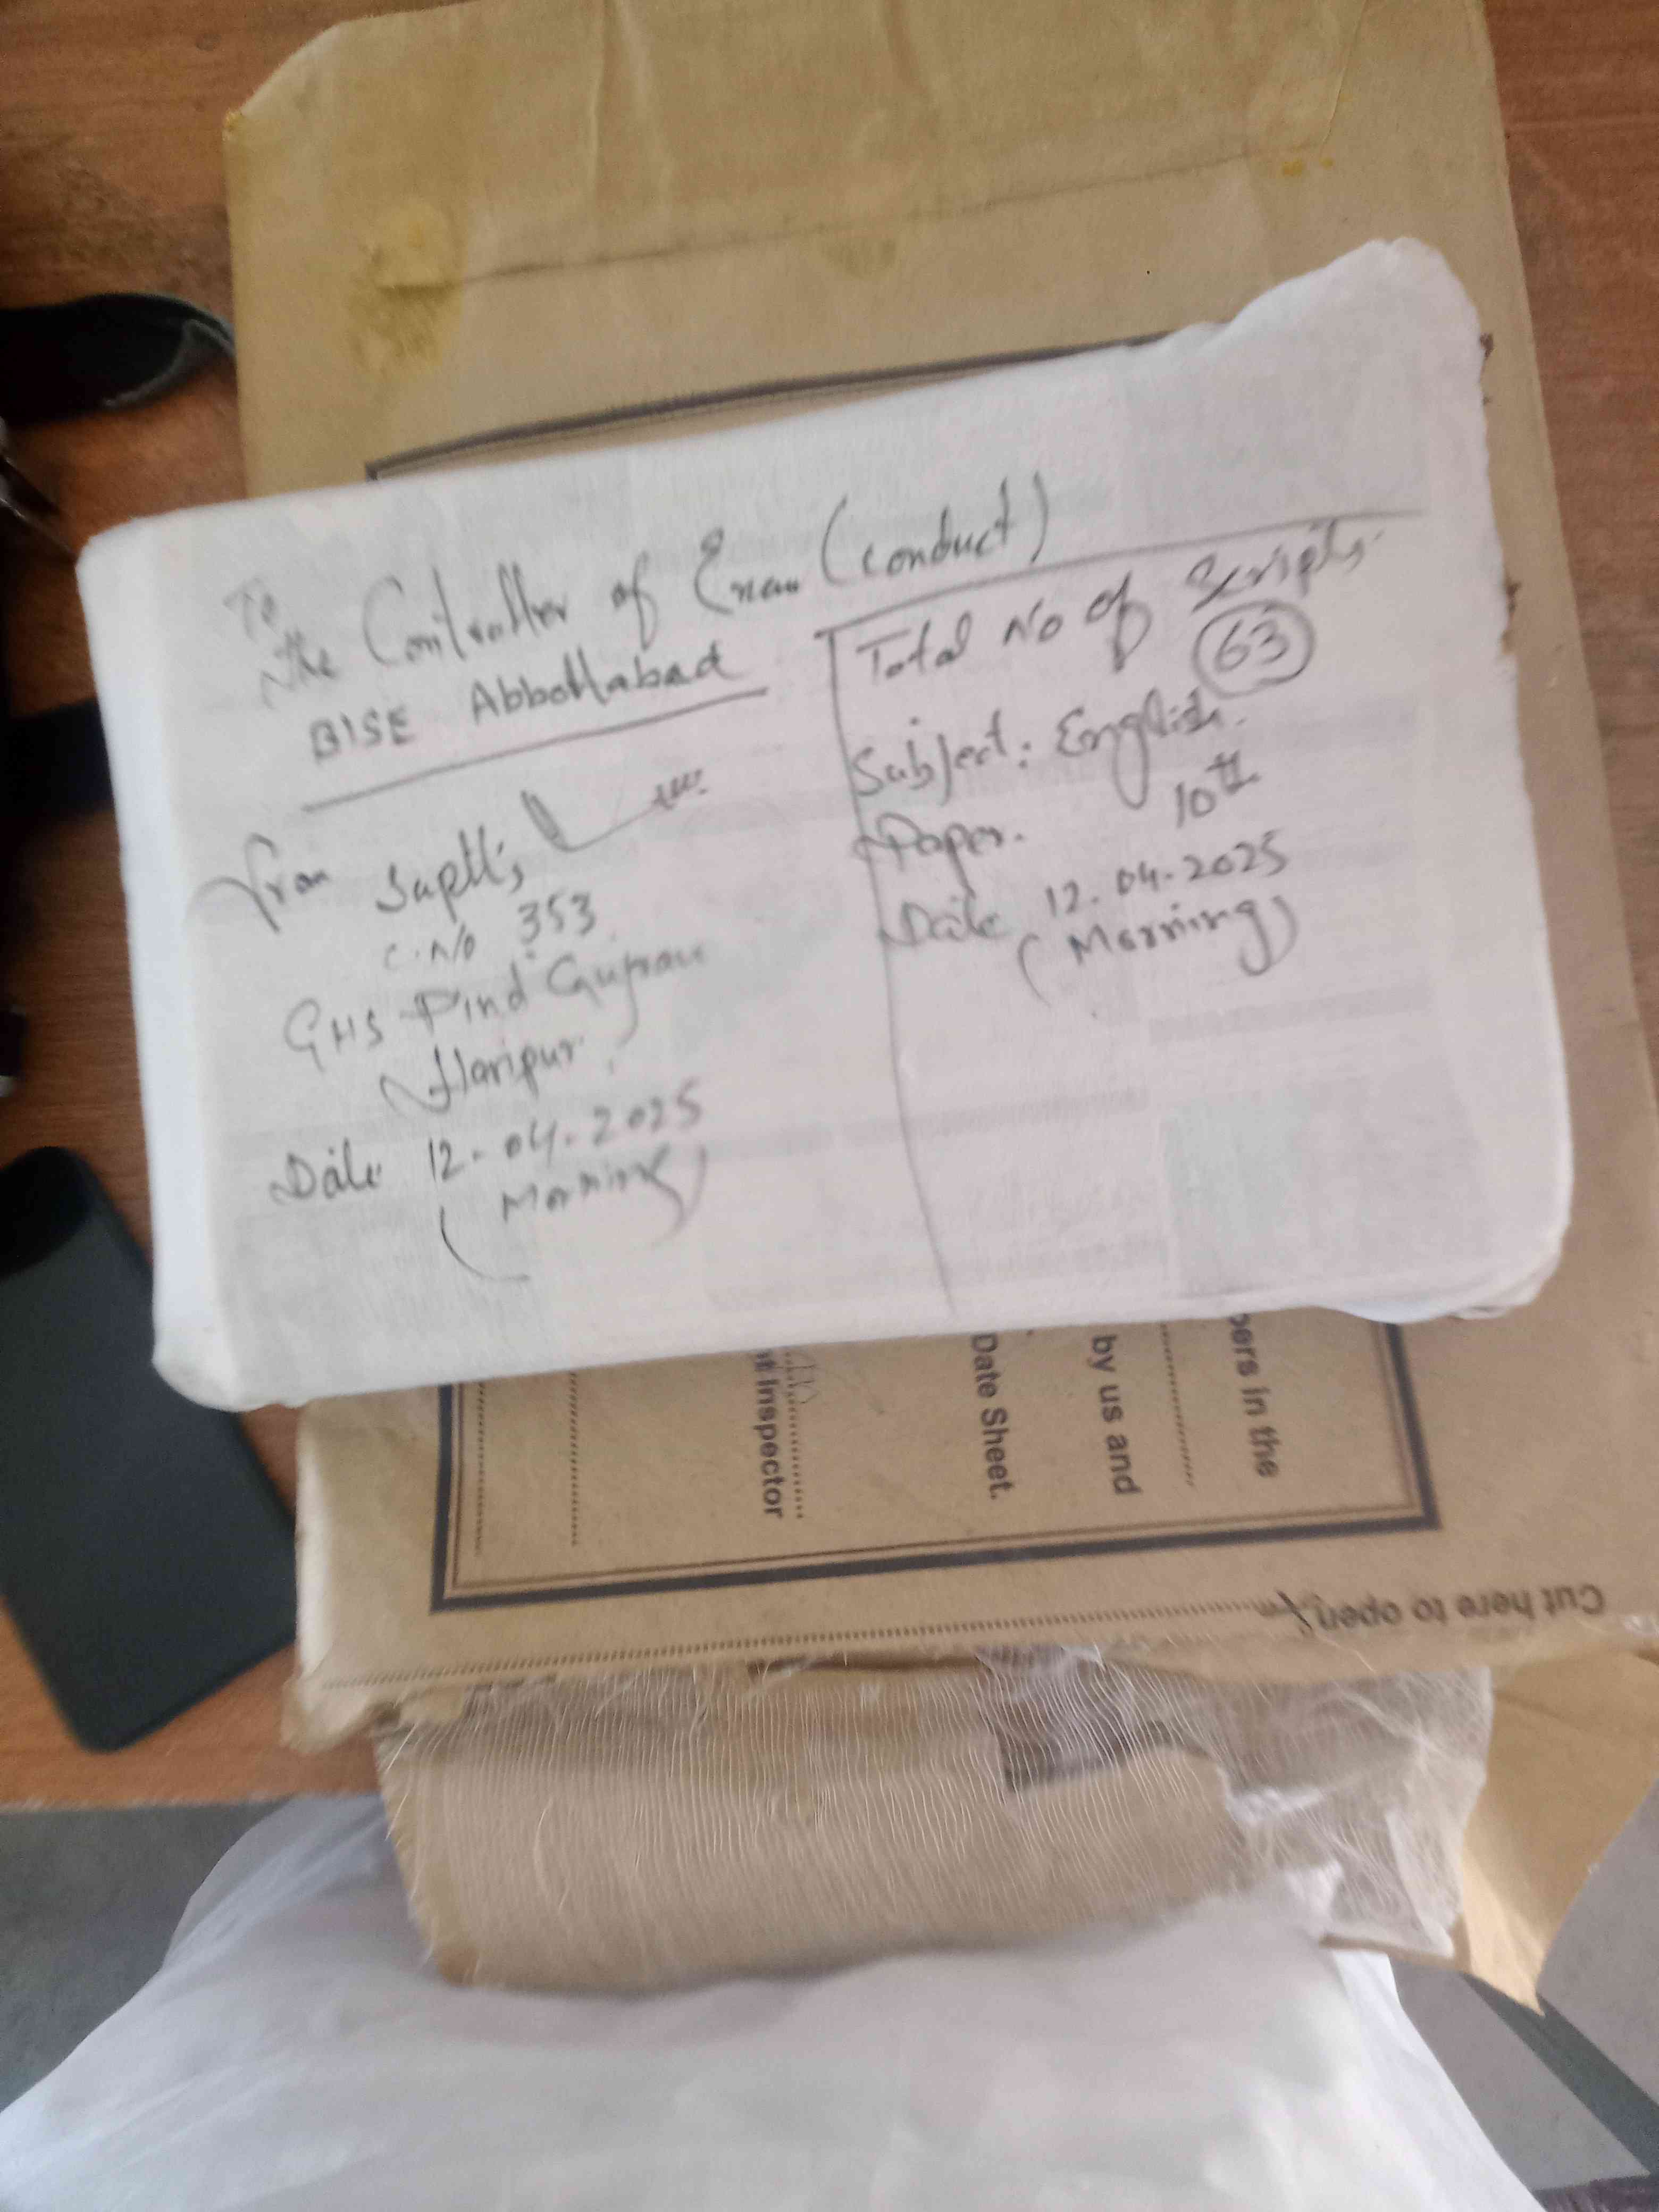 To
The Controller of Exam (conduct)
BISE Abbottabad
From Suptt;
C.N/o 353
GHS Pind Gujran
Haripur
Date 12-04-2025
(Morning)
Total No of Scripts
63
Subject: English.
Paper. 10th
Date 12.04.2025
(Morning)
pers in the
by us and
Date Sheet.
nt Inspector
Cut here to open